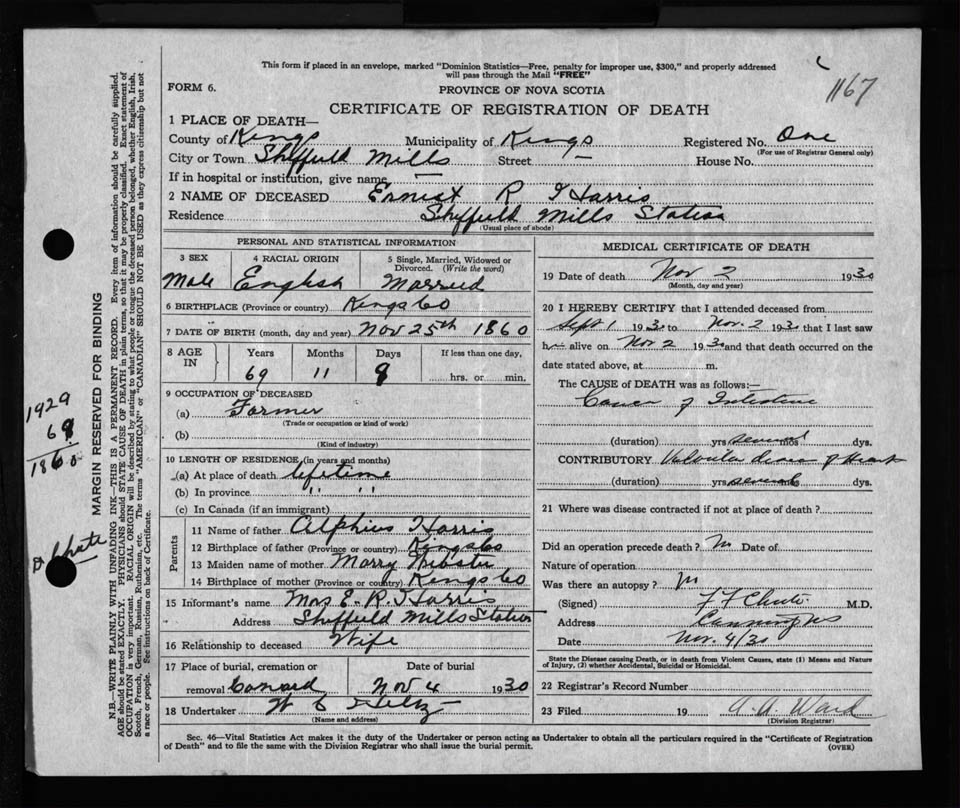 This form if placed in an envelope, marked "Dominion Statistics—Free, penalty for improper use, $300," and properly addressed
will pass through the Mail "FREE"
1167
FORM 6.
PROVINCE OF NOVA SCOTIA
CERTIFICATE OF REGISTRATION OF DEATH
1 PLACE OF DEATH—
County of Kings Municipality of Kings Registered No. One
(For use of Registrar General only)
City or Town Sheffield Mills Street — House No.
If in hospital or institution, give name —
2 NAME OF DECEASED Ernest R Harris
Residence Sheffield Mills Station
(Usual place of abode)
PERSONAL AND STATISTICAL INFORMATION
3 SEX 4 RACIAL ORIGIN 5 Single, Married, Widowed or
Divorced. (Write the word)
Male English Married
6 BIRTHPLACE (Province or country) Kings Co
7 DATE OF BIRTH (month, day and year) Nov 25th 1860
8 AGE IN Years Months Days If less than one day,
69 11 8 hrs. or min.
9 OCCUPATION OF DECEASED
(a) Farmer
(Trade or occupation or kind of work)
(b)
(Kind of industry)
10 LENGTH OF RESIDENCE (in years and months)
(a) At place of death lifetime
(b) In province " " " "
(c) In Canada (if an immigrant)
Parents
11 Name of father Alphius Harris
12 Birthplace of father (Province or country) Kings Co
13 Maiden name of mother Marry Webster
14 Birthplace of mother (Province or country) Kings Co
15 Informant's name Mrs E. R. Harris
Address Sheffield Mills Station
16 Relationship to deceased Wife
17 Place of burial, cremation or Date of burial
removal Canard Nov 4 1930
18 Undertaker W
(Name and address)
MEDICAL CERTIFICATE OF DEATH
19 Date of death Nov 2 1930
(Month, day and year)
20 I HEREBY CERTIFY that I attended deceased from
Sept 1 1930 to Nov. 2 1930 that I last saw
h alive on Nov 2 1930 and that death occurred on the
date stated above, at m.
The CAUSE of DEATH was as follows:—
Cancer of Intestine
(duration) yrs. several mos. dys.
CONTRIBUTORY Valvular disease of Heart
(duration) yrs. several dys.
21 Where was disease contracted if not at place of death?
Did an operation precede death? No Date of
Nature of operation
Was there an autopsy? No
(Signed) F F Chute M.D.
Address Canning NS
Date Nov. 4/30
State the Disease causing Death, or in death from Violent Causes, state (1) Means and Nature
of Injury, (2) whether Accidental, Suicidal or Homicidal.
22 Registrar's Record Number
23 Filed 19 A. A. Ward
(Division Registrar)
Sec. 46—Vital Statistics Act makes it the duty of the Undertaker or person acting as Undertaker to obtain all the particulars required in the "Certificate of Registration
of Death" and to file the same with the Division Registrar who shall issue the burial permit.
(OVER)
MARGIN RESERVED FOR BINDING
N.B.—WRITE PLAINLY WITH UNFADING INK—THIS IS A PERMANENT RECORD. Every item of information should be carefully supplied.
AGE should be stated EXACTLY. PHYSICIANS should STATE CAUSE OF DEATH in plain terms, so that it may be properly classified. Exact statement of
OCCUPATION is very important. RACIAL ORIGIN will be described by stating to what people or tongue the deceased person belonged, whether English, Irish,
Scotch, French, German, Russian, Ruthenian, etc. The terms "AMERICAN" or "CANADIAN" SHOULD NOT BE USED as they express citizenship but not
a race or people. See instructions on back of Certificate.
1929
69
1860